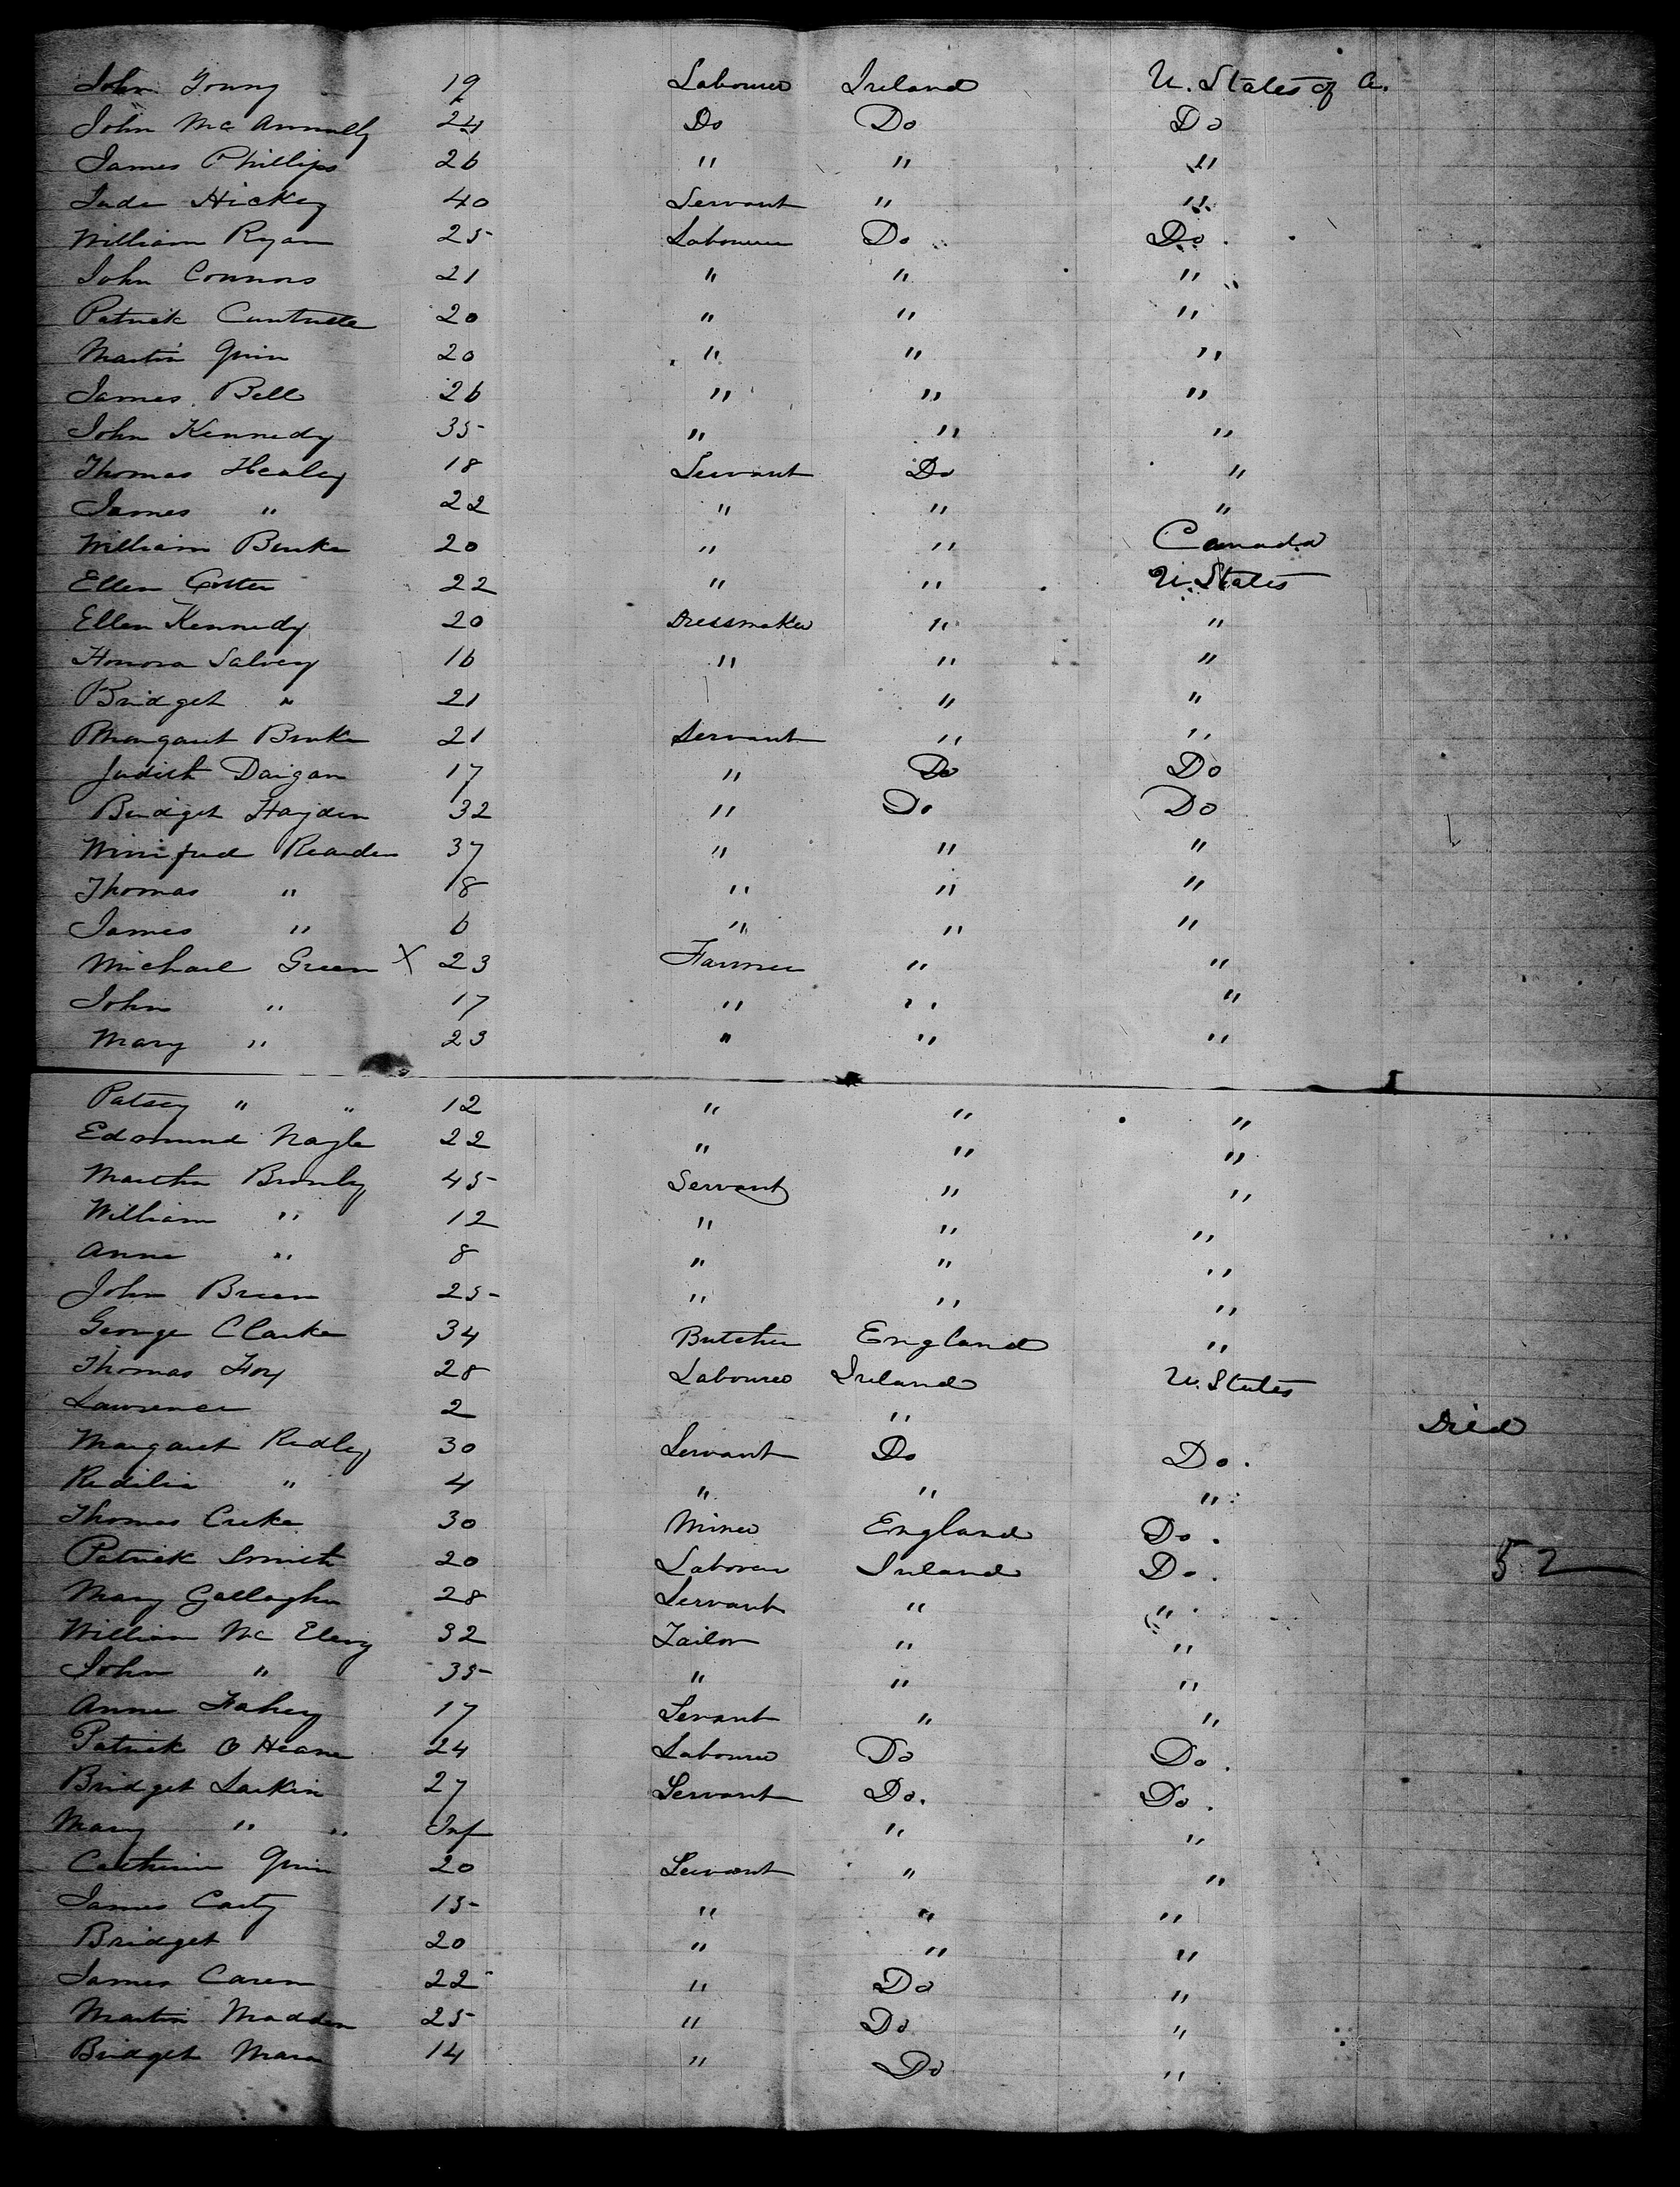 John Young 19 Labourer Ireland U. States of A.
John McAnnally 24 Do Do Do
James Phillips 26 " " "
Jude Hickey 40 Servant " "
William Ryan 25 Labourer Do Do.
John Connors 21 " " "
Patrick 20 " " "
Martin Quin 20 " " "
James Bell 26 " " "
John Kennedy 35 " " "
Thomas Healey 18 Servant Do "
James " 22 " " "
William Burke 20 " " Canada
Ellen Cotter 22 " " U. States
Ellen Kennedy 20 Dressmaker " "
Honora Salvey 16 " " "
Bridget " 21 " "
Margaret Burke 21 Servant " "
Judith Daigan 17 " Do Do
Bridget Hayden 32 " Do Do
Winifred Rearden 37 " " "
Thomas " 8 " " "
James " 6 " " "
Michael Green X 23 Farmer " "
John " 17 " " "
Mary " 23 " " "
Patsey " " 12 " " "
Edmund Nagle 22 " " "
Martha 45 Servant " "
William " 12 " " "
Anne " 8 " " "
John Breen 25 " " "
George Clarke 34 Butcher England "
Thomas Foy 28 Labourer Ireland U. States
Lawrence 2 " Died
Margaret Ridley 30 Servant Do Do.
" 4 " " "
Thomas Creke 30 Miner England Do.
Patrick Smith 20 Laborer Ireland Do. 52
Mary Gallagher 28 Servant " "
William McElevy 32 Tailor " "
John " 35 " " "
Anne Fahey 17 Servant " "
Patrick O Heane 24 Labourer Do Do.
Bridget Larkin 27 Servant Do. Do.
Mary " " Inf " "
Catherine Quin 20 Servant " "
James Carty 15 " " "
Bridget 20 " " "
James Caren 22 " Do "
Martin Madden 25 " Do "
Bridget Mara 14 " Do "